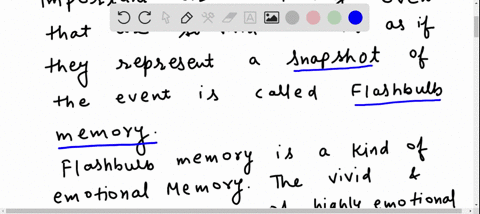 that as if
they represent a snapshot of
the event is called Flashbulb
memory.
Flashbulb memory is a kind of
emotional Memory. The vivid &
of highly emotional